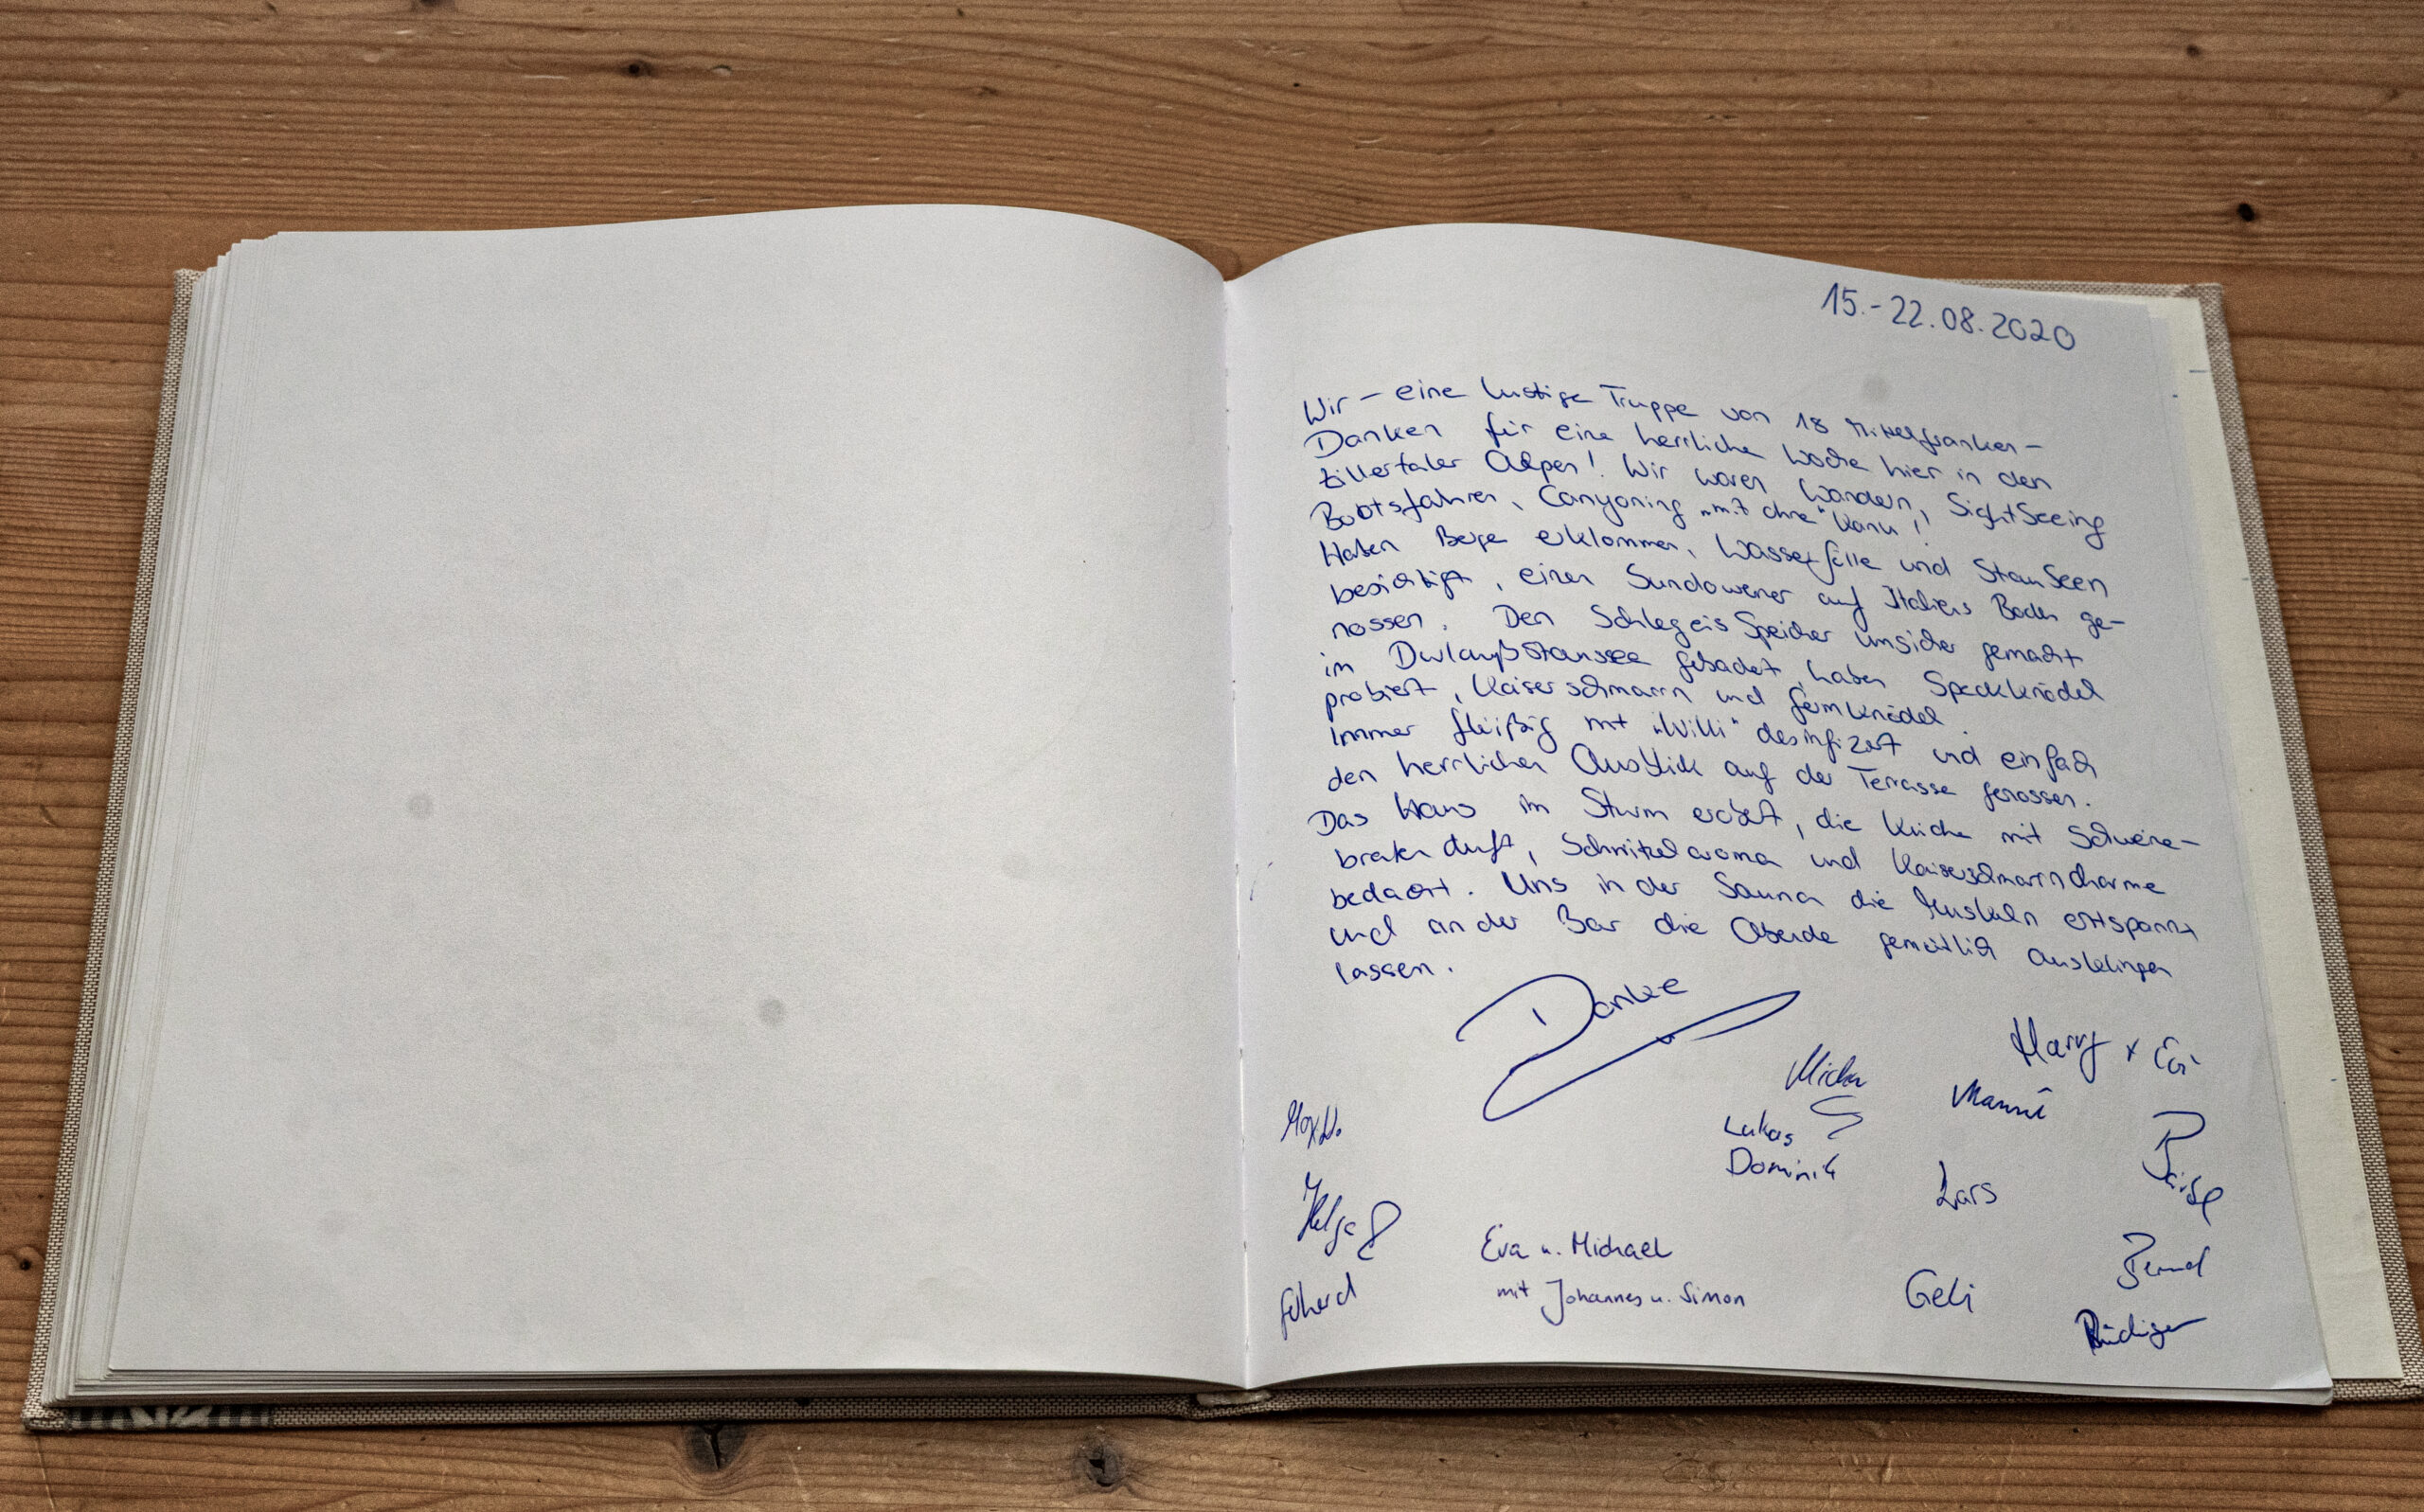 15.-22.08.2020
Wir – eine lustige Truppe von 18 Mittelfranken –
Danken für eine herrliche Woche hier in den
Zillertaler Alpen! Wir waren Wandern, SightSeeing
Bootsfahren, Canyoning „mit ohne“ Kanu!
Haben Berge erklommen, Wasserfälle und StauSeen
besichtigt, einen Sundowner auf Italiens Boden ge-
nossen. Den Schlegeis Speicher unsicher gemacht
im Durlaßstausee gebadet, haben Speckknödel
probiert, Kaiserschmarrn und Germknödel
Immer fleißig mit „Willi“ desinfiziert und einfach
den herrlichen Ausblick auf der Terrasse genossen.
Das Haus im Sturm erobert, die Küche mit Schweine-
bratenduft, Schnitzelaroma und Kaiserschmarrncharme
bedacht. Uns in der Sauna die Muskeln entspannt
und an der Bar die Abende gemütlich ausklingen
lassen.
Danke
Harry + Evi
Micha
Manni
Lukas
Dominik
Lars
Helga
Eva u. Michael
Bernd
mit Johannes u. Simon
Geli
Gerhard
Rüdiger